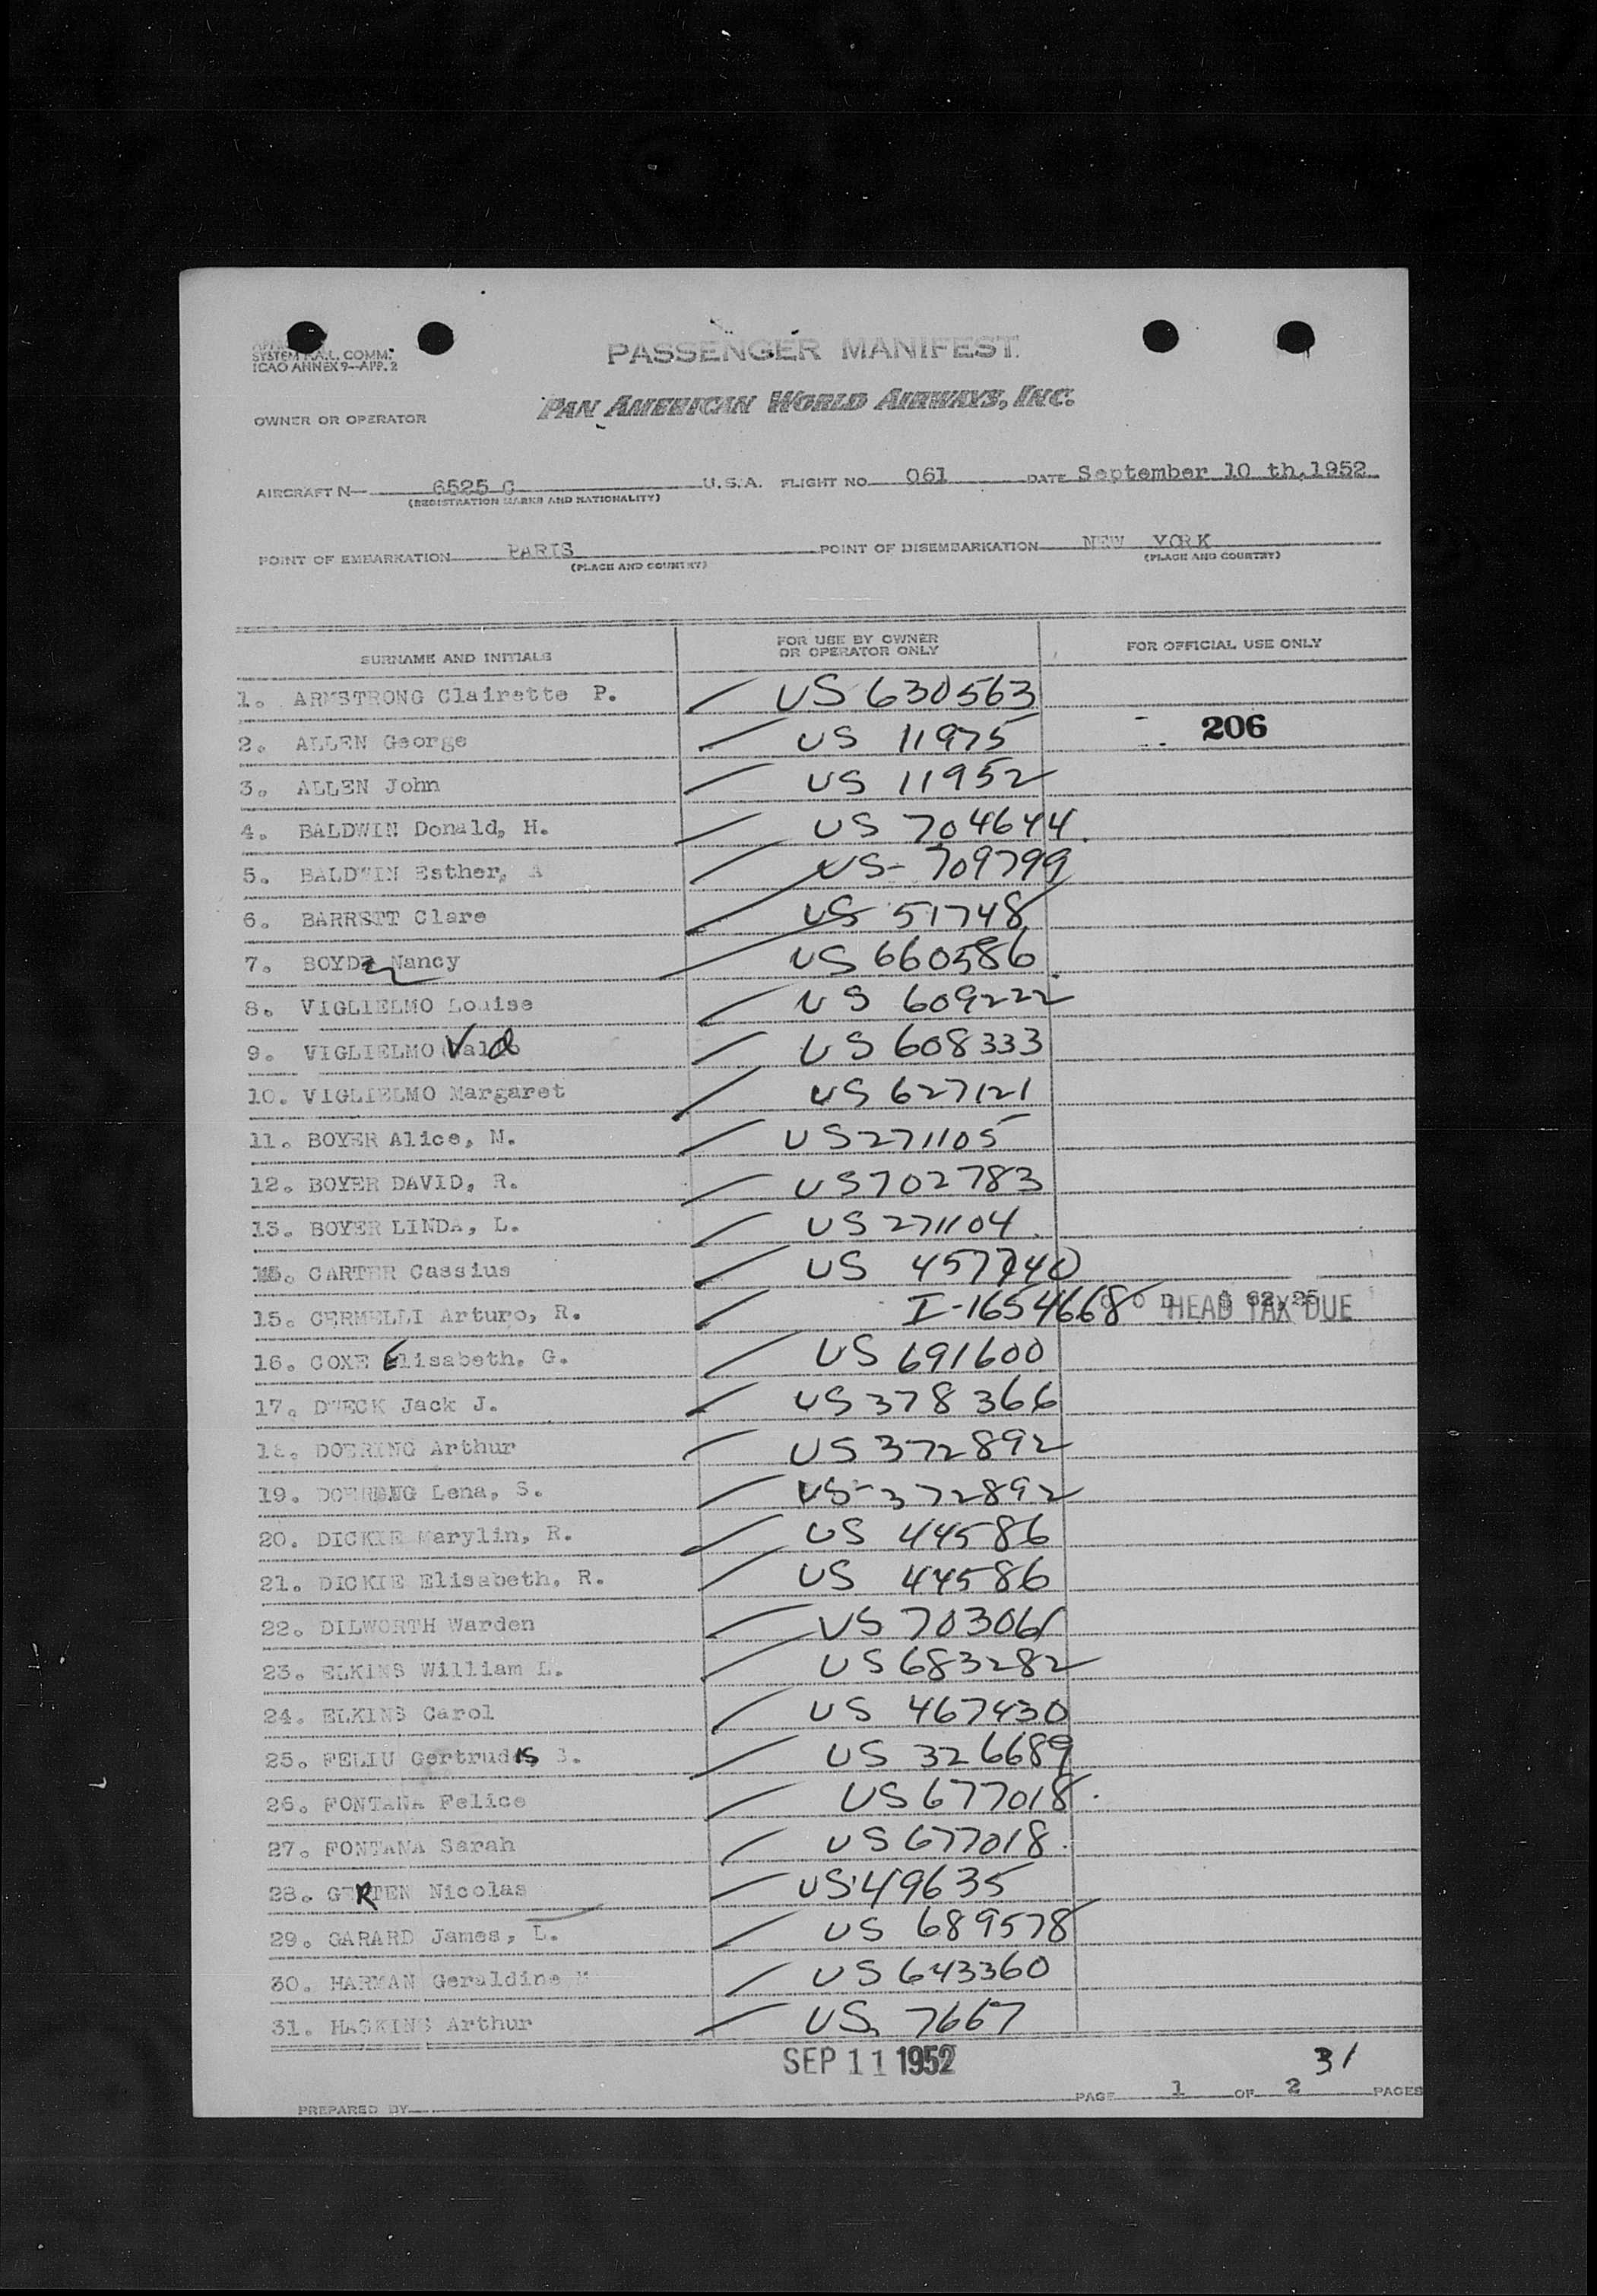 SYSTEM COMM.
ICAO ANNEX 9—APP. 2
PASSENGER MANIFEST
OWNER OR OPERATOR PAN AMERICAN WORLD AIRWAYS, INC.
AIRCRAFT N— 6525 C U.S.A. FLIGHT NO. 061 DATE September 10 th,1952
(REGISTRATION MARKS AND NATIONALITY)
POINT OF EMBARKATION PARIS POINT OF DISEMBARKATION NEW YORK
(PLACE AND COUNTRY) (PLACE AND COUNTRY)
SURNAME AND INITIALS FOR USE BY OWNER OR OPERATOR ONLY FOR OFFICIAL USE ONLY
1. ARMSTRONG Clairette P. US 630563
2. ALLEN George US 11975 206
3. ALLEN John US 11952
4. BALDWIN Donald, H. US 704644
5. BALDWIN Esther, A US- 709799
6. BARRETT Clare US 51748
7. BOYD Nancy US 660586
8. VIGLIELMO Louise US 609222
9. VIGLIELMO Valdo US 608333
10. VIGLIELMO Margaret US 627121
11. BOYER Alice, M. US 271105
12. BOYER DAVID, R. US 702783
13. BOYER LINDA, L. US 271104
CARTER Cassius US 457740
15. CERMELLI Arturo, R. I-1654668 HEAD TAX DUE
16. COXE Elisabeth, G. US 691600
17. DWECK Jack J. US 378366
18. DOERING Arthur US 372892
19. DOERING Lena, S. US-372892
20. DICKIE Marylin, R. US 44586
21. DICKIE Elisabeth, R. US 44586
22. DILWORTH Warden US 703061
23. ELKINS William L. US 683282
24. ELKINS Carol US 467430
25. FELIU Gertrudis US 326689
26. FONTANA Felice US 677018
27. FONTANA Sarah US 677018
28. GERTEN Nicolas US 49635
29. GARARD James, L. US 689578
30. HARMAN Geraldine M US 643360
31. HASKINS Arthur US 7667
SEP 11 1952 31
PAGE 1 OF 2 PAGES
PREPARED BY